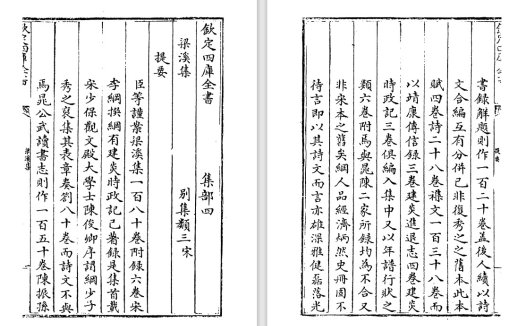 欽定四庫全書 集部四
梁溪集 別集類三宋
提要
臣等謹案梁溪集一百八十卷附録六卷宋
李綱撰綱有建炎時政記已著録是集首載
宋少保觀文殿大學士陳俊卿序謂綱少子
秀之裒集其表章奏劄八十卷而詩文不與
焉晁公武讀書志則作一百五十卷陳振孫
梁溪集
書録解題則作一百二十卷蓋後人續以詩
文合編互有分併已非復秀之之舊本此本
賦四卷詩二十八卷襍文一百三十八卷而
以靖康傳信録三卷建炎進退志四卷建炎
時政記三卷俱編入集中又以年譜行狀之
類六卷附焉與晁陳二家所録均為不合又
非宋本之舊矣綱人品經濟炳然史冊固不
待言即以其詩文而言亦雄深雅健磊落光
提要